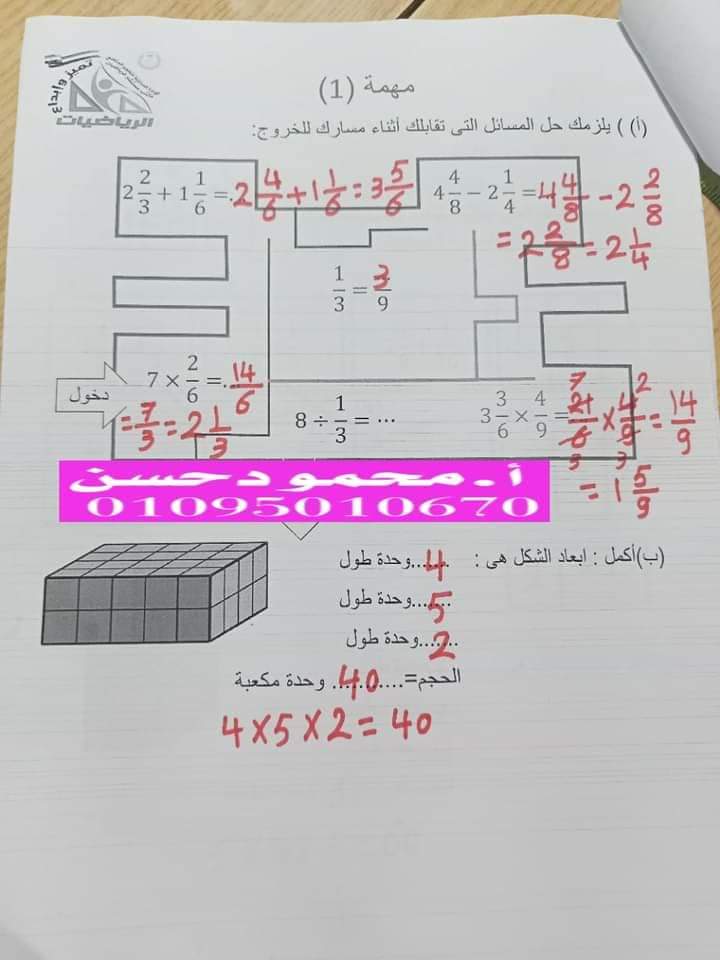 تميز وإبداع
الرياضيات
مهمة (1)
(أ) ) يلزمك حل المسائل التى تقابلك أثناء مسارك للخروج:
2 2/3 + 1 1/6 =. 2 4/6 + 1 1/6 = 3 5/6
4 4/8 − 2 1/4 = 4 4/8 − 2 2/8
= 2 2/8 = 2 1/4
1/3 = 3/9
دخول
7 × 2/6 =.. 14/6
= 7/3 = 2 1/3
8 ÷ 1/3 = ...
3 3/6 × 4/9 = 21/6 × 4/9 = 14/9
7 2
3 3
= 1 5/9
أ.محمودحسن
01095010670
(ب)أكمل : ابعاد الشكل هى : ...4...وحدة طول
...5...وحدة طول
...2...وحدة طول
الحجم=....40.... وحدة مكعبة
4 × 5 × 2 = 40